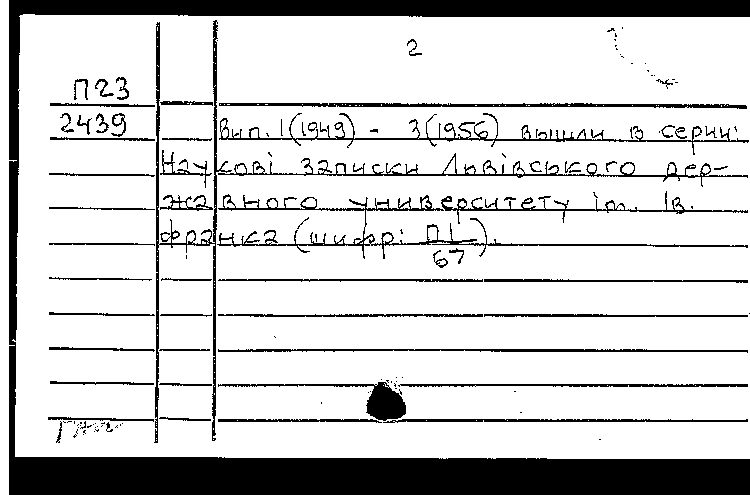 2
П23
2439
Вип. 1(1949) - 3(1956) вышли в серии:
Наукові записки Львівського дер-
жавного университету ім. Ів.
Франка (шифр: П1
67).